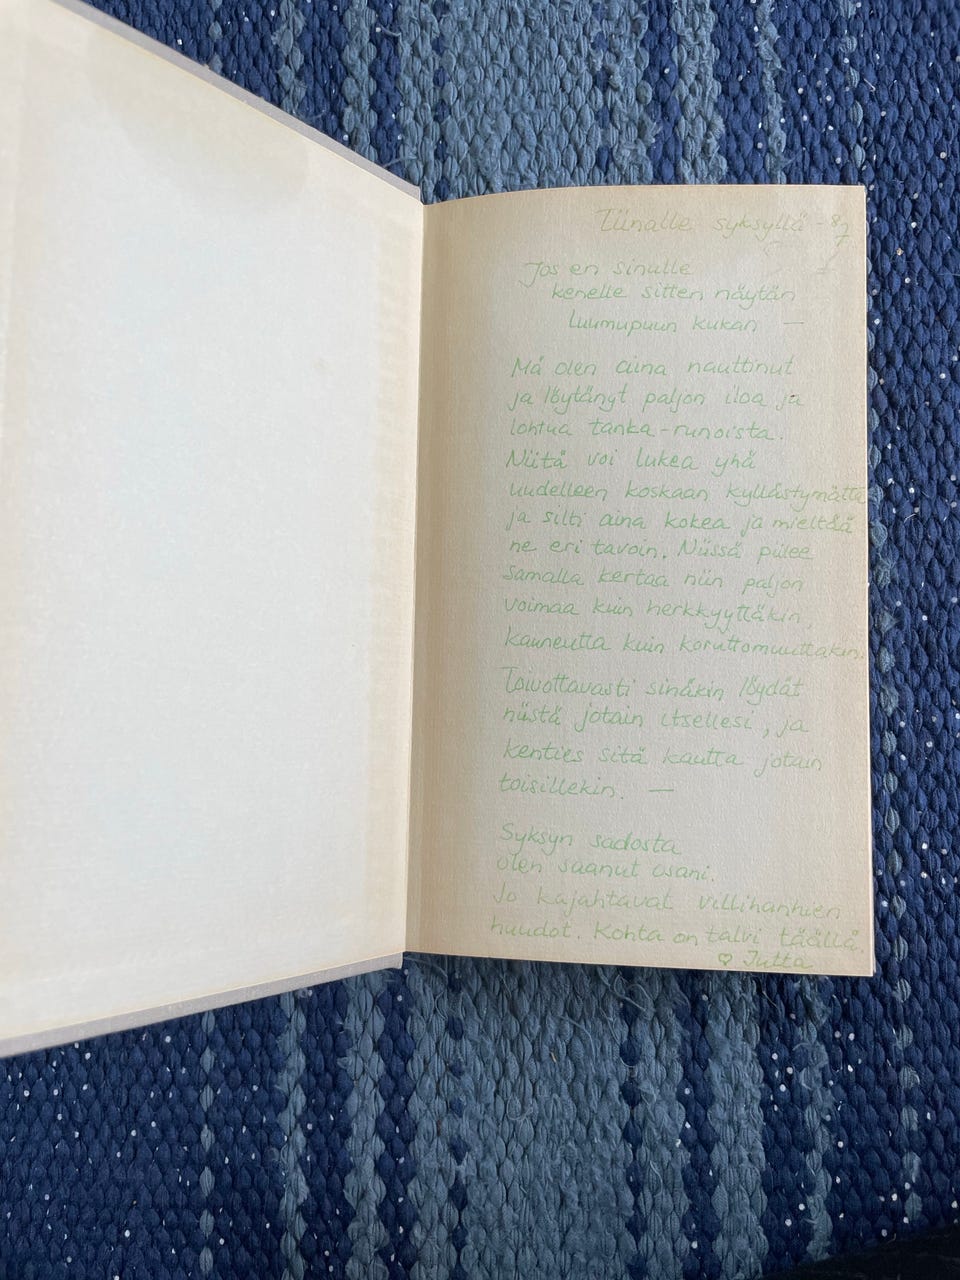 Tiinalle syksyllä -87
Jos en sinulle
kenelle sitten näytän
luumupuun kukan —
Mä olen aina nauttinut
ja löytänyt paljon iloa ja
lohtua tanka-runoista.
Niitä voi lukea yhä
uudelleen koskaan kyllästymättä
ja silti aina kokea ja mieltää
ne eri tavoin. Niissä piilee
samalla kertaa niin paljon
voimaa kuin herkkyyttäkin,
kauneutta kuin koruttomuuttakin.
Toivottavasti sinäkin löydät
niistä jotain itsellesi, ja
kenties sitä kautta jotain
toisillekin. —
Syksyn sadosta
olen saanut osani.
Jo kajahtavat villihanhien
huudot. Kohta on talvi täällä.
♡ Jutta